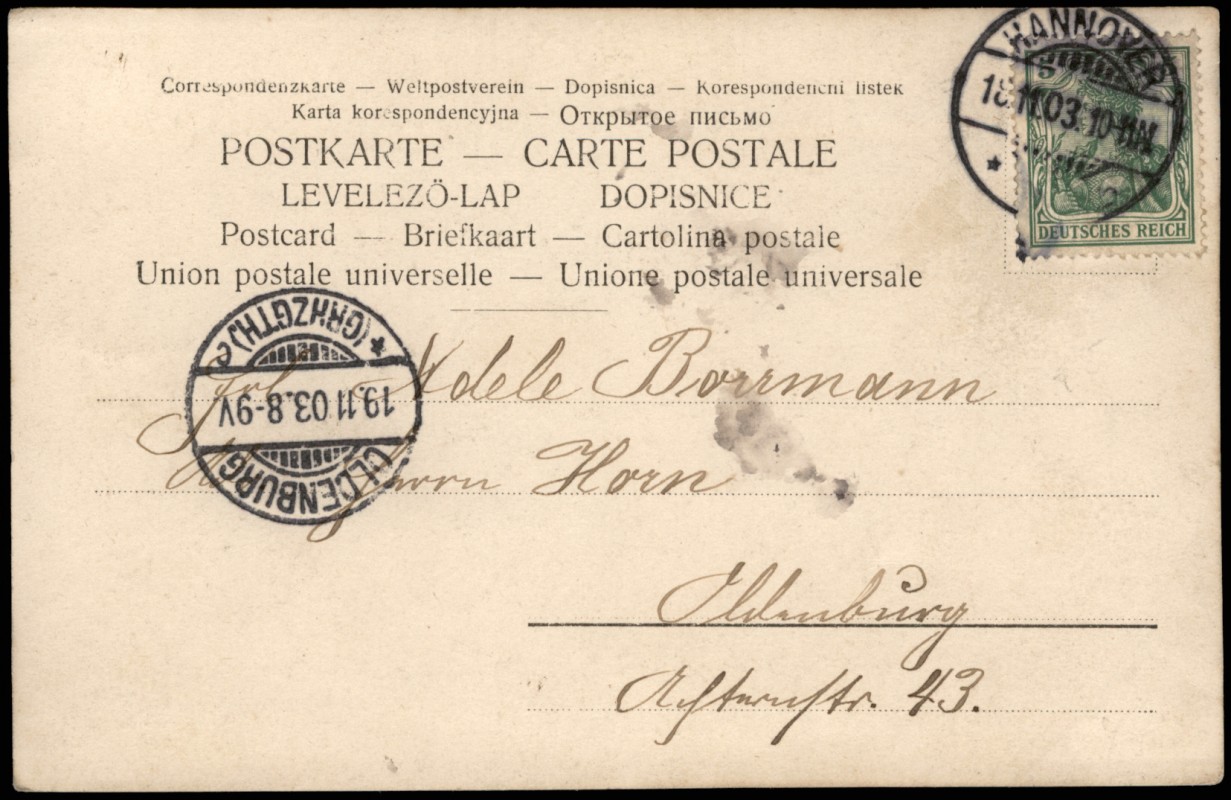 Correspondenzkarte — Weltpostverein — Dopisnica — Korespondencni listek
Karta korespondencyjna — Открытое письмо
POSTKARTE — CARTE POSTALE
LEVELEZÖ-LAP DOPISNICE
Postcard — Briefkaart — Cartolina postale
Union postale universelle — Unione postale universale
HANNOVER
18.11.03.10-11N.
5
DEUTSCHES REICH
* (GRHZGTH.) e
19.11.03.8-9V
OLDENBURG
Frl. Adele Borrmann
Herrn Horn
Oldenburg
Achternstr. 43.